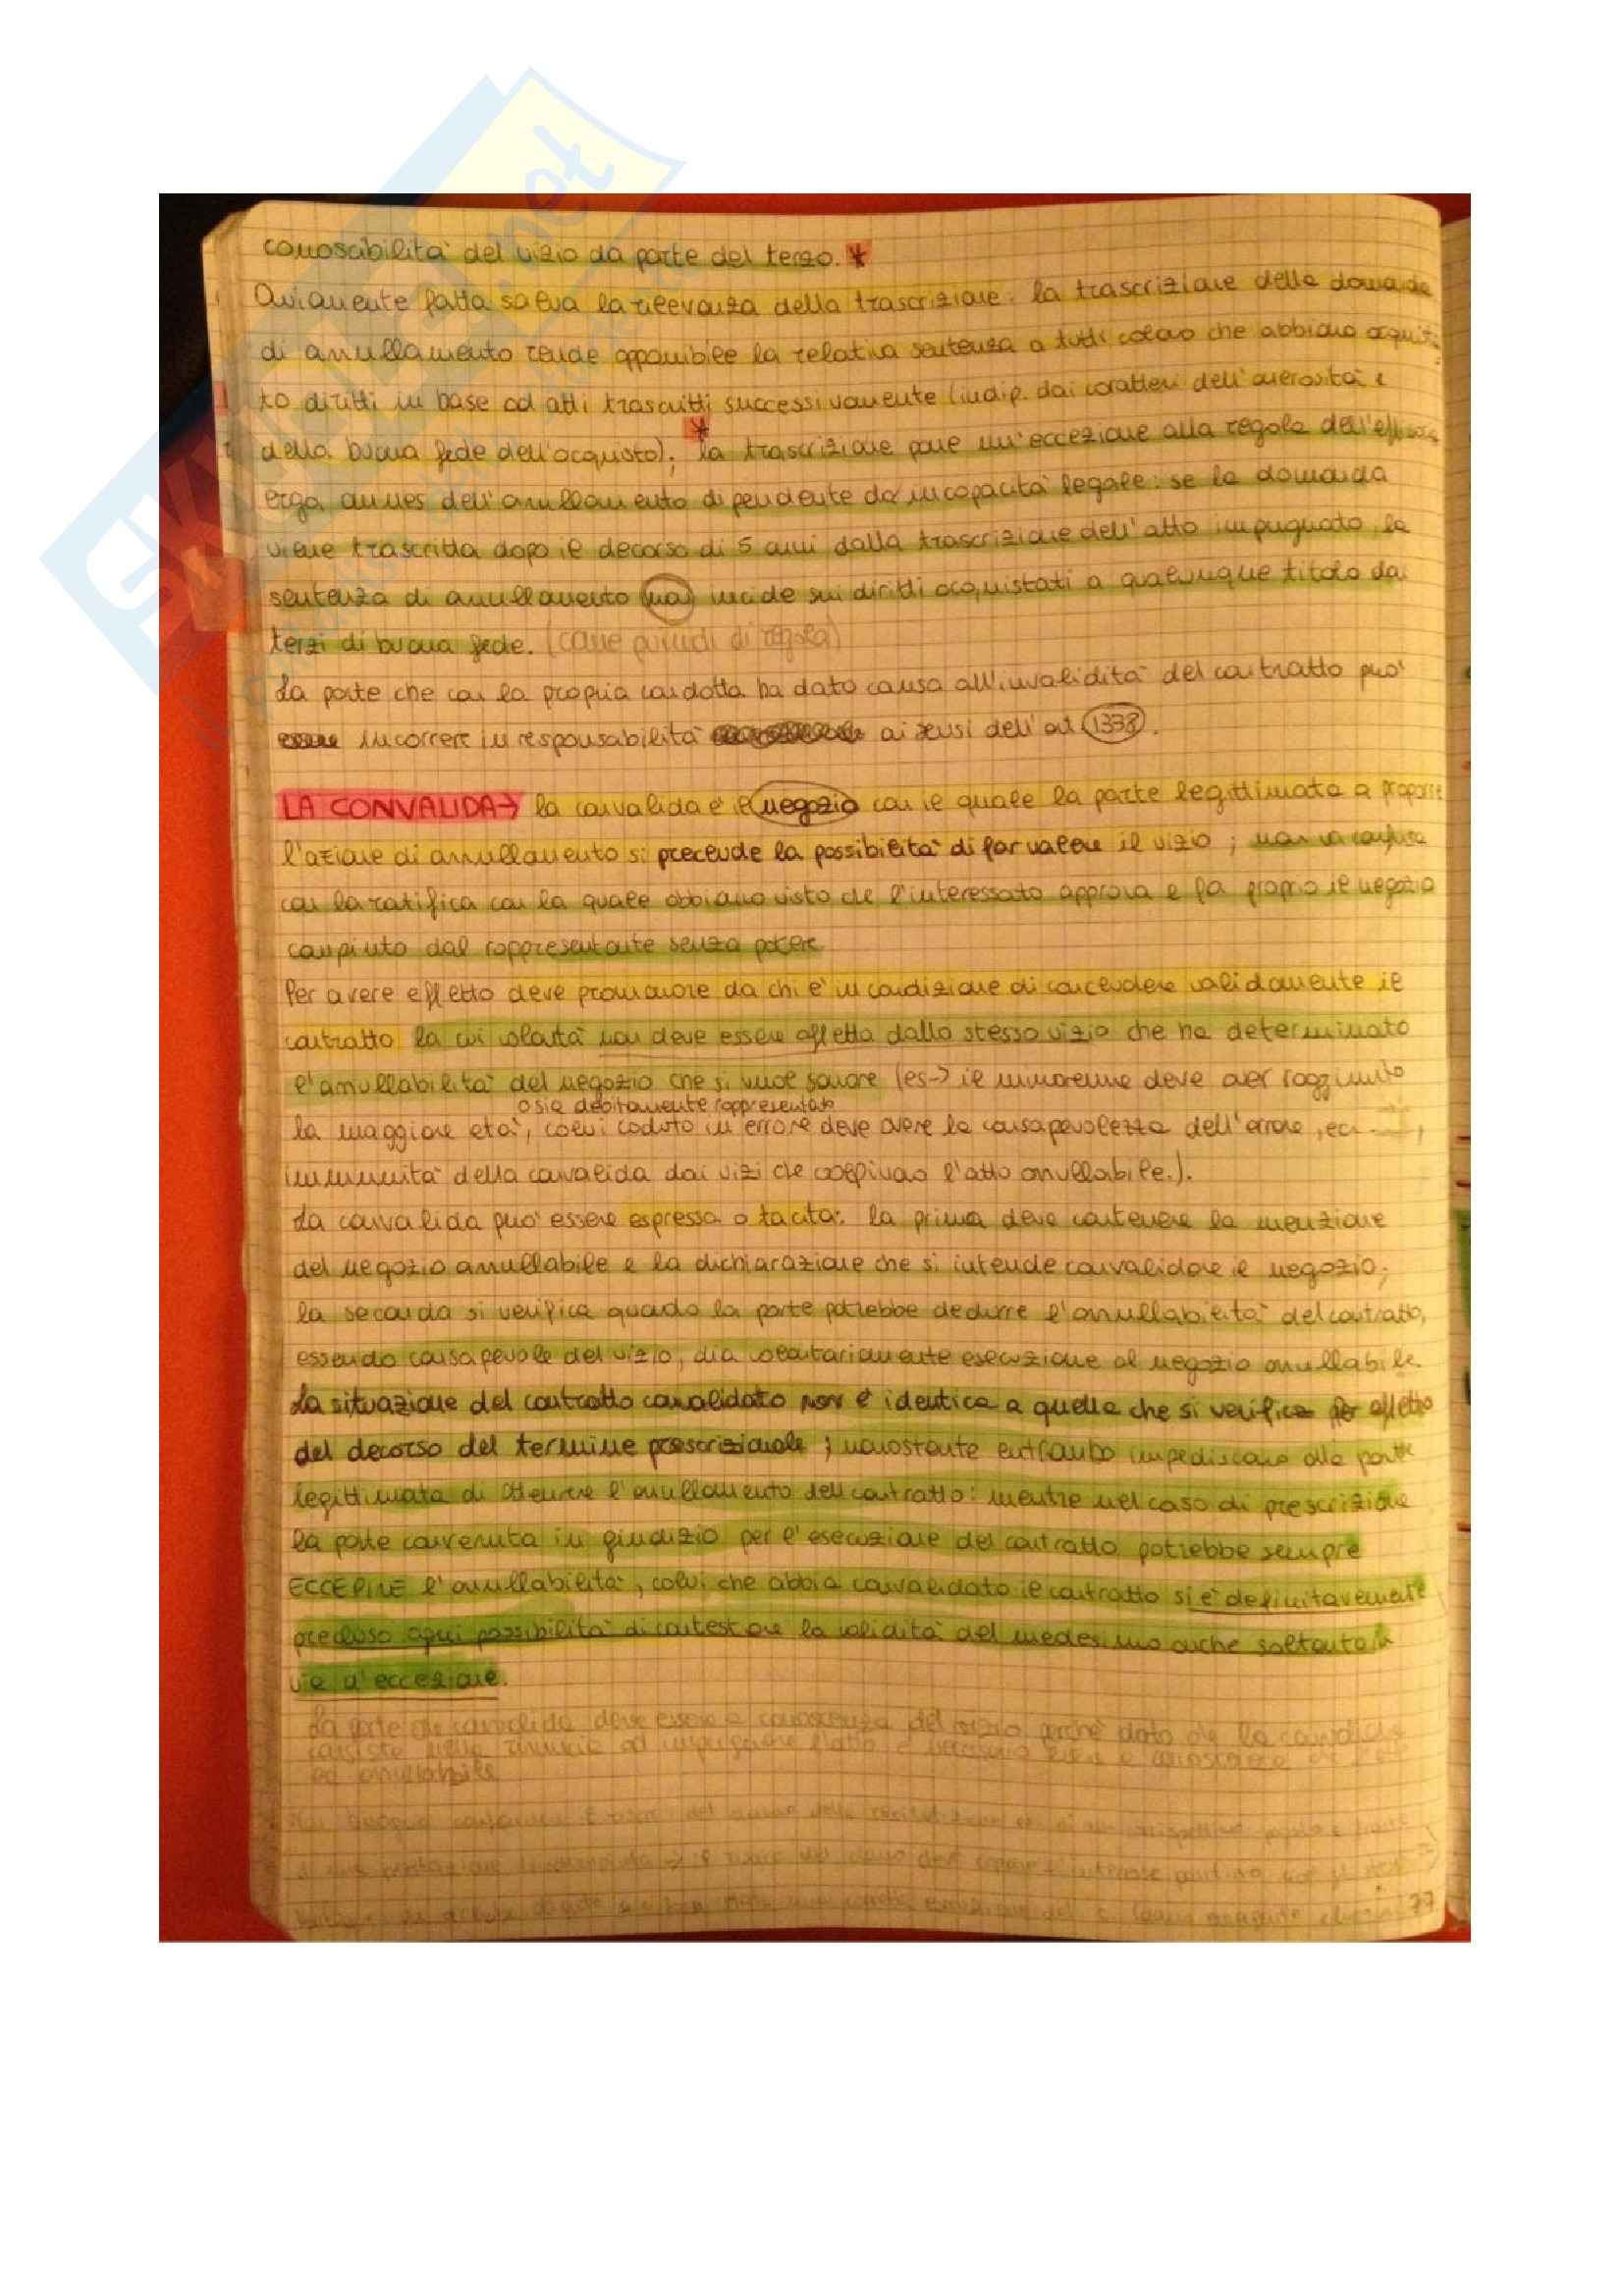 conoscibilità del vizio da parte del terzo. *
Oviamente fatta salva la rilevanza della trascrizione: la trascrizione della domanda
di annullamento rende opponibile la relativa sentenza a tutti coloro che abbiano acquista
to diritti in base ad atti trascritti successivamente (indip. dai caratteri dell'onerosità e
della buona fede dell'acquisto); * la trascrizione pone un'eccezione alla regola dell'efficacia
erga omnes dell'annullamento dipendente da incapacità legale: se la domanda
viene trascritta dopo il decorso di 5 anni dalla trascrizione dell'atto impugnato, la
sentenza di annullamento non incide sui diritti acquistati a qualunque titolo da
terzi di buona fede. (come quindi di regola)
La parte che con la propria condotta ha dato causa all'invalidità del contratto può
incorrere in responsabilità ai sensi dell'art 1338.
LA CONVALIDA → la convalida è il negozio con il quale la parte legittimata a proporre
l'azione di annullamento si preclude la possibilità di far valere il vizio; non va confusa
con la ratifica con la quale abbiamo visto che l'interessato approva e fa proprio il negozio
compiuto dal rappresentante senza potere
Per avere effetto deve promanare da chi è in condizione di concludere validamente il
contratto la cui volontà non deve essere affetta dallo stesso vizio che ha determinato
l'annullabilità del negozio che si vuole sanare (es → il minorenne deve aver raggiunto
o sia debitamente rappresentato
la maggiore età, colui caduto in errore deve avere la consapevolezza dell'errore, ecc
immunità della convalida dai vizi che colpivano l'atto annullabile.).
La convalida può essere espressa o tacita: la prima deve contenere la menzione
del negozio annullabile e la dichiarazione che si intende convalidare il negozio;
la seconda si verifica quando la parte potrebbe dedurre l'annullabilità del contratto,
essendo consapevole del vizio, dia volontariamente esecuzione al negozio annullabile.
La situazione del contratto convalidato non è identica a quella che si verifica per effetto
del decorso del termine prescrizionale; nonostante entrambo impediscano alla parte
legittimata di ottenere l'annullamento del contratto: mentre nel caso di prescrizione
la parte convenuta in giudizio per l'esecuzione del contratto potrebbe sempre
ECCEPIRE l'annullabilità, colui che abbia convalidato il contratto si è definitavemente
precluso ogni possibilità di contestare la validità del medesimo anche soltanto in
via d'eccezione.
La parte che convalida deve essere a conoscenza del vizio perchè dato che la convalida
consiste nella rinuncia ad impugnare l'atto è necessario essere a conoscenza che
è annullabile
77